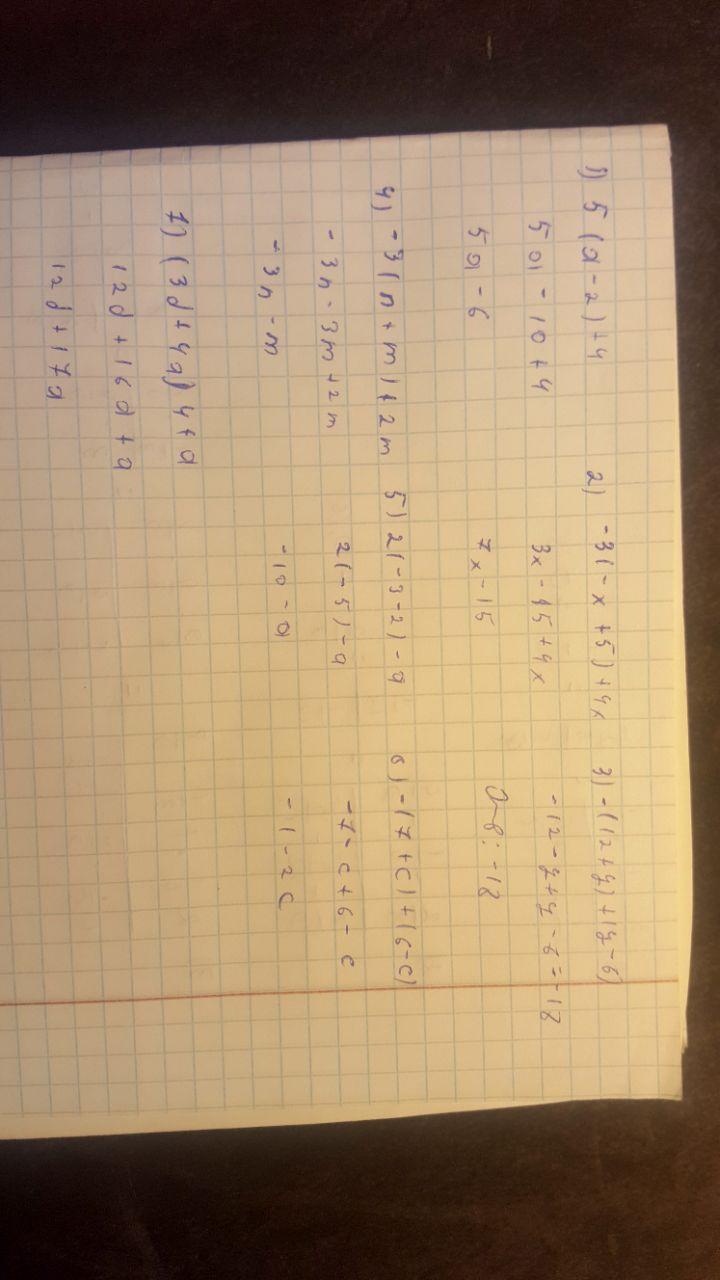 1) 5(a-2)+4
5a-10+4
5a-6
2) -3(-x+5)+4x
3x-15+4x
7x-15
3) -(12+y)+(y-6)
-12-y+y-6=-18
Отв: -18
4) -3(n+m)+2m
-3n-3m+2m
-3n-m
5) 2(-3-2)-a
2(-5)-a
-10-a
6) -(7+c)+(6-c)
-7-c+6-c
-1-2c
7) (3d+4a)4+a
12d+16a+a
12d+17a